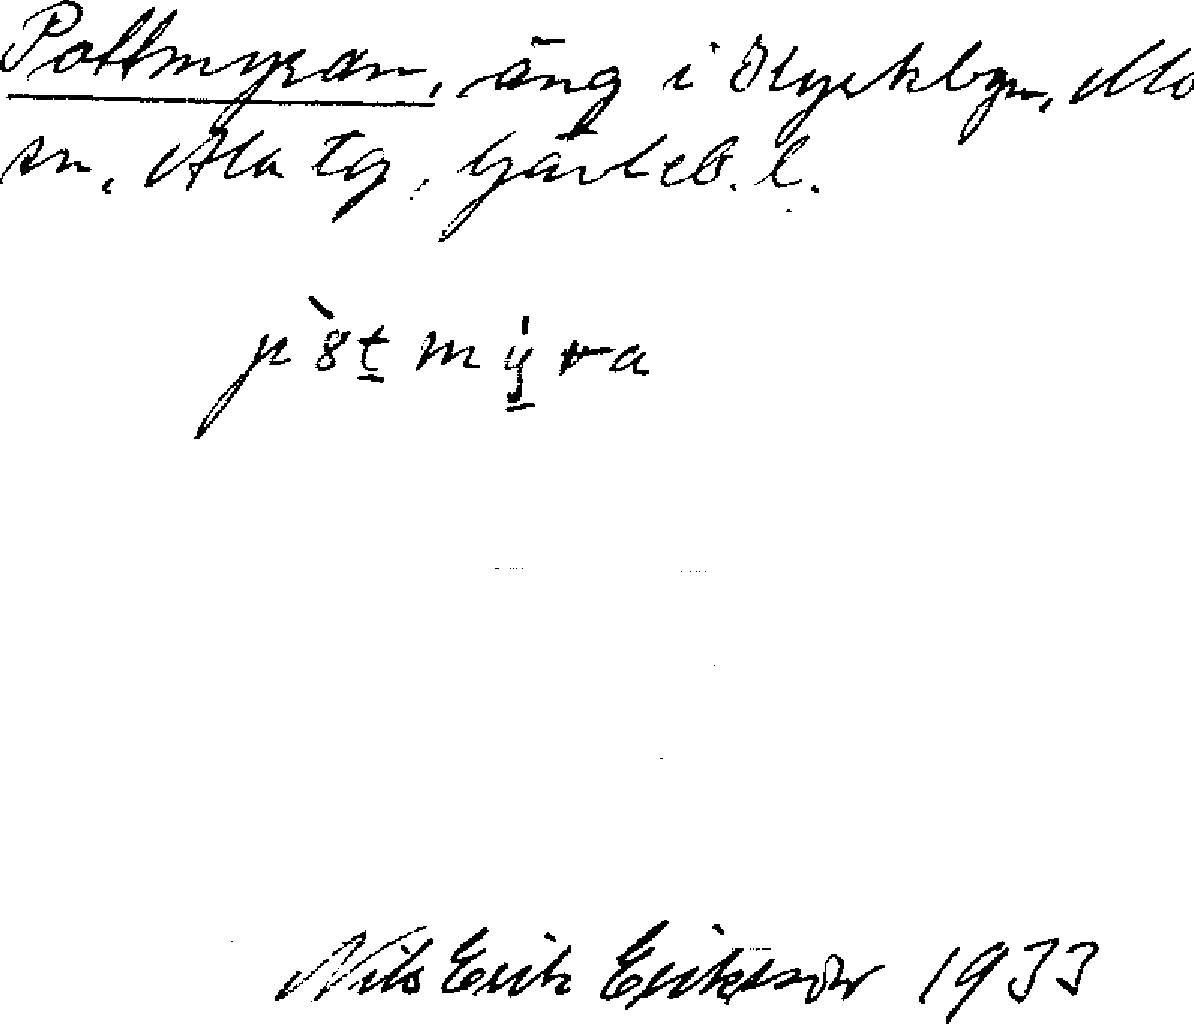 Pottmyran, äng i Kyrkbyn, Mo
sn, Ala tg, Gävleb. l.
p`8t mýra
Nils Erik Eriksson 1933